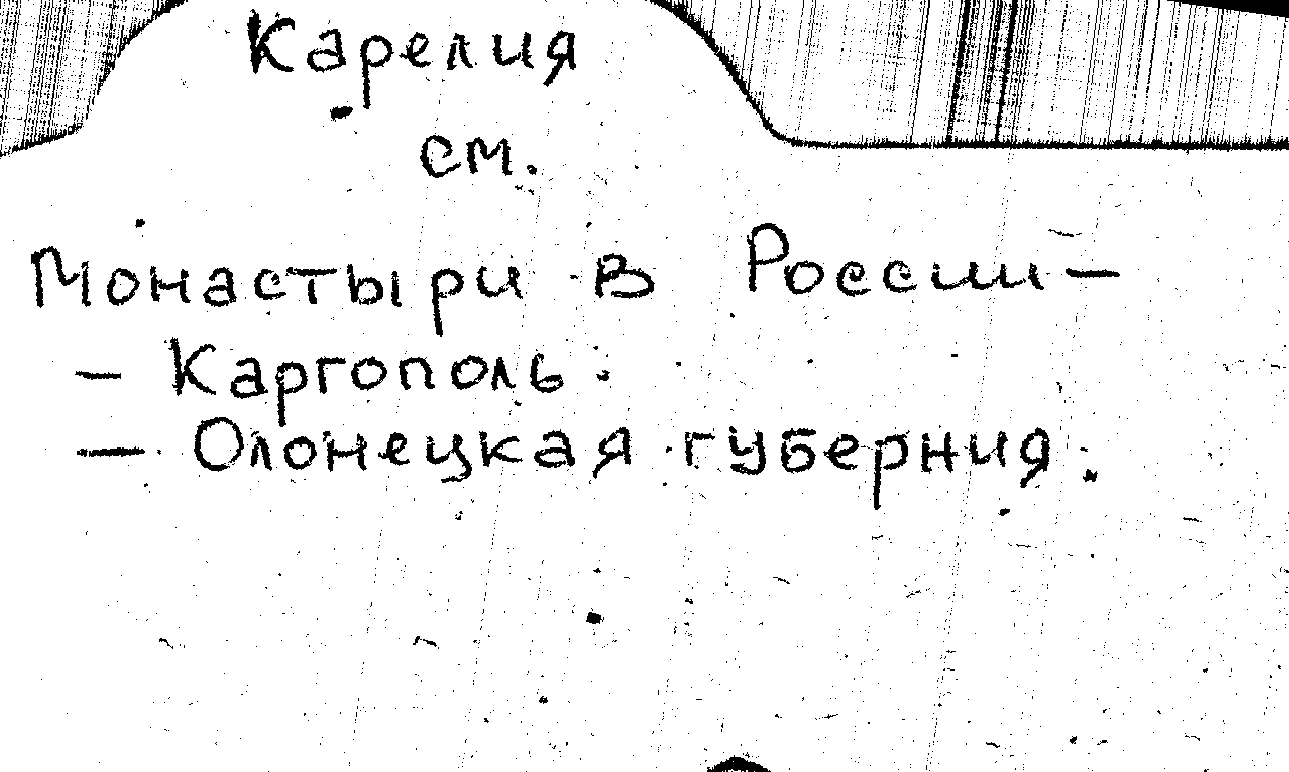 Карелия
см.
Монастыри в России —
— Каргополь.
— Олонецкая губерния.